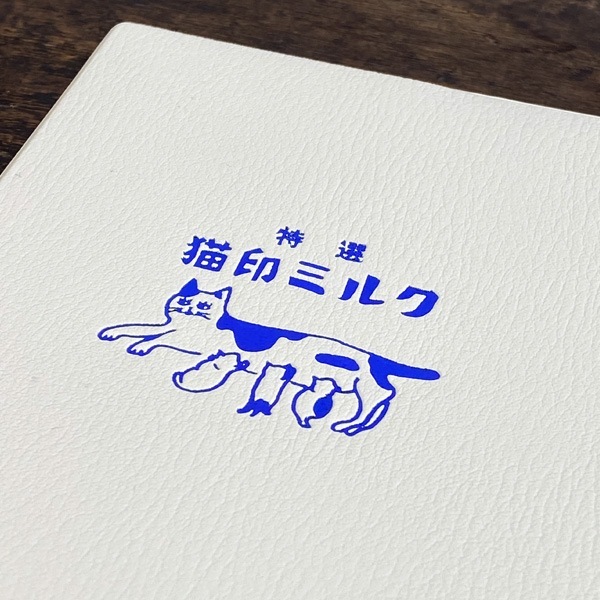 特選
猫印ミルク